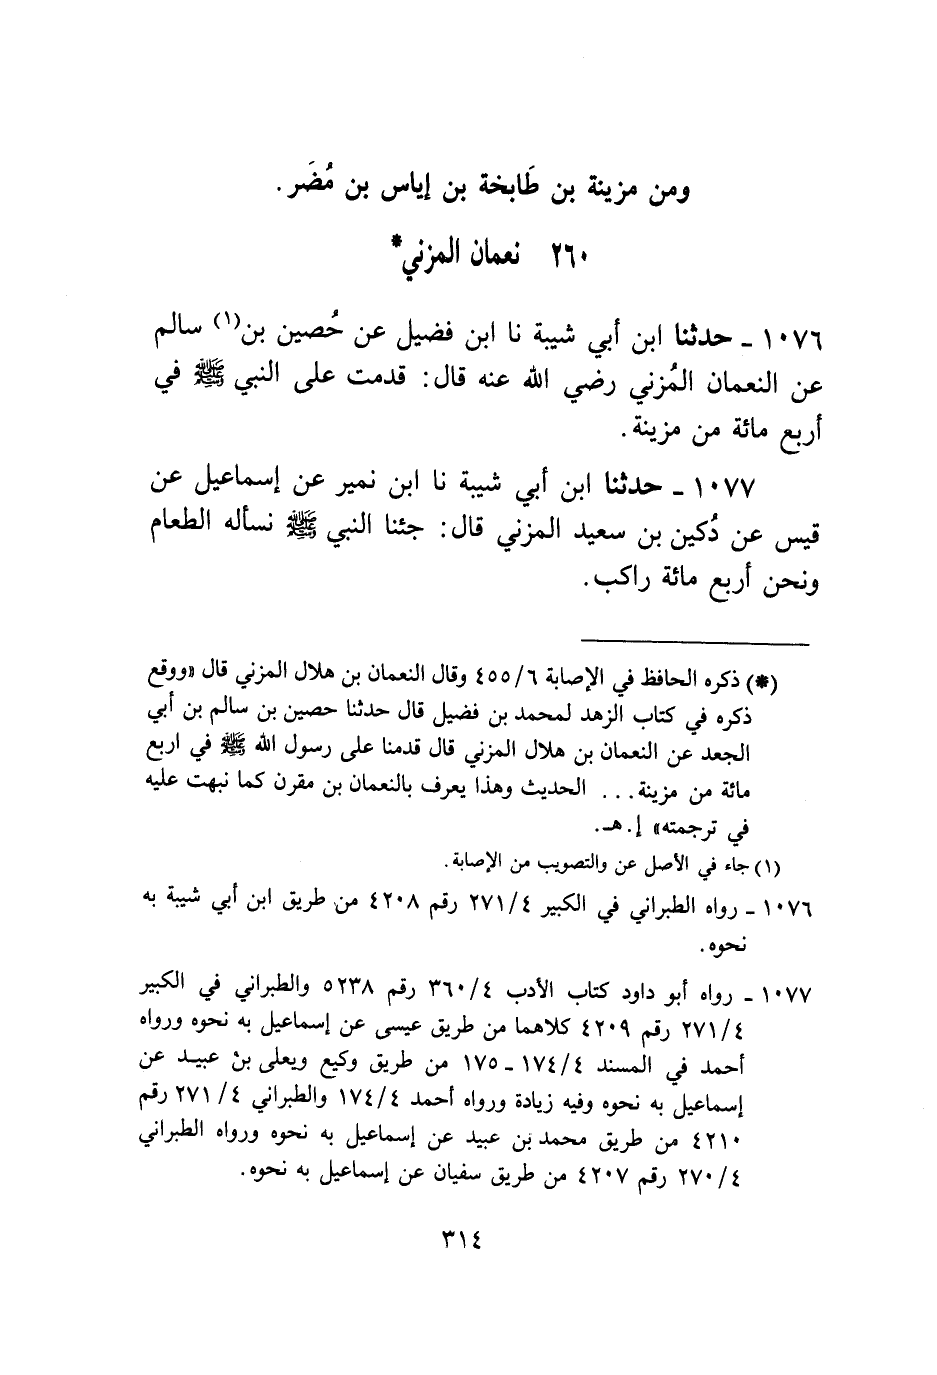 ومن مزينة بن طَابخة بن إياس بن مُضَر .
٢٦٠ نعمان المزني*
١٠٧٦ ـ حدثنا ابن أبي شيبة نا ابن فضيل عن حُصين بن(١) سالم
عن النعمان المُزني رضي الله عنه قال : قدمت على النبي ﷺ في
أربع مائة من مزينة .
١٠٧٧ ـ حدثنا ابن أبي شيبة نا ابن نمير عن إسماعيل عن
قيس عن دُكين بن سعيد المزني قال : جئنا النبي ﷺ نسأله الطعام
ونحن أربع مائة راكب .
(*) ذكره الحافظ في الإصابة ٤٥٥/٦ وقال النعمان بن هلال المزني قال «ووقع
ذكره في كتاب الزهد لمحمد بن فضيل قال حدثنا حصين بن سالم بن أبي
الجعد عن النعمان بن هلال المزني قال قدمنا على رسول الله ﷺ في اربع
مائة من مزينة . . . الحديث وهذا يعرف بالنعمان بن مقرن كما نبهت عليه
في ترجمته» إ . هـ .
(١) جاء في الأصل عن والتصويب من الإصابة .
١٠٧٦ ـ رواه الطبراني في الكبير ٢٧١/٤ رقم ٤٢٠٨ من طريق ابن أبي شيبة به
نحوه .
١٠٧٧ ـ رواه أبو داود كتاب الأدب ٣٦٠/٤ رقم ٥٢٣٨ والطبراني في الكبير
٢٧١/٤ رقم ٤٢٠٩ كلاهما من طريق عيسى عن إسماعيل به نحوه ورواه
أحمد في المسند ١٧٤/٤ ـ ١٧٥ من طريق وكيع ويعلى بن عبيد عن
إسماعيل به نحوه وفيه زيادة ورواه أحمد ١٧٤/٤ والطبراني ٢٧١/٤ رقم
٤٢١٠ من طريق محمد بن عبيد عن إسماعيل به نحوه ورواه الطبراني
٢٧٠/٤ رقم ٤٢٠٧ من طريق سفيان عن إسماعيل به نحوه .
٣١٤